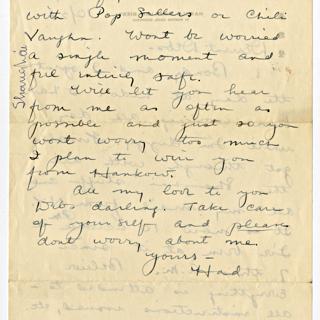 with Pop Sellers or Chili
Vaughn. Wont be worried
a single moment and
feel intirely safe.
Will let you hear
from me as often as
possible and just so you
wont worry too much
I plan to wire you
from Hankow.
All my love to you
Debs darling. Take care
of yourself and please
dont worry about me
yours –
Had
Shanghai